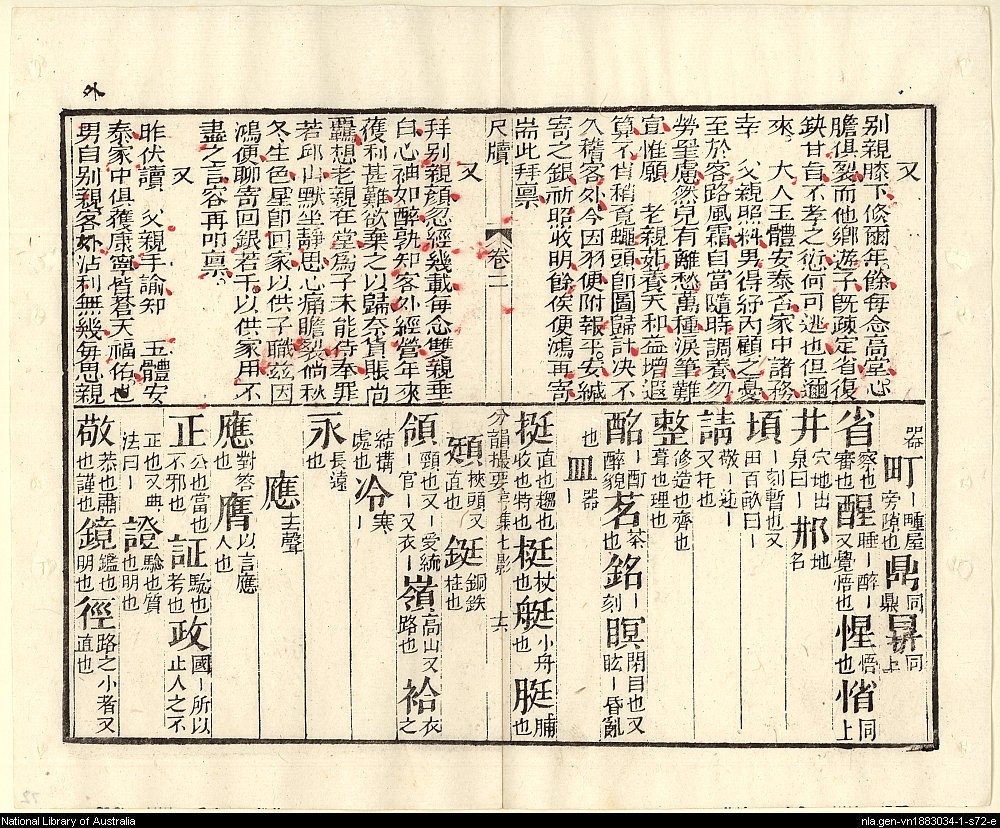 外
又
別親膝下倏爾年餘每念高堂心
膽俱裂而他鄉遊子既疎定省復
缺甘旨不孝之術何可逃也但邇
來 大人玉體安泰否家中諸務
幸 父親照料男得紓內顧之憂
至於客路風霜自當隨時調養勿
勞罣慮然兒有離愁萬種淚筆難
宣惟願 老親茹養天和益增遐
算不肖稍覓蠅頭即圖歸計决不
久稽客外今因羽便附報平安緘
寄之銀祈照收明餘俟便鴻再寄
耑此拜稟
尺牘
卷二
又
拜別親顏忽經幾載每念雙親垂
白心神如醉孰知客外經營年來
獲利甚難欲棄之以歸奈貨賬尚
覊想老親在堂為子未能侍奉罪
若邱山默坐靜思心痛膽裂倘秋
冬生色星即回家以供子職茲因
鴻便聊寄回銀若干以供家用不
盡之言容再叩稟
又
昨伏讀 父親手諭知 五體安
泰家中俱獲康寧皆蒼天福佑也
男自別親客外沾利無幾每思親
器
町 ｜疃屋旁隙也 鼎 同鼎 㫁 同上
省 察也審也 醒 睡｜醉｜又覺悟也 惺 悟也 㥠 同上
井 穴地出泉曰｜ 邢 地名
頃 ｜刻暫也又田百畝曰｜
請 敬｜延｜又扞也
整 修造也齊也葺也理也
酩 ｜酊醉貌 茗 茶也 銘 ｜刻 瞑 閉目也又眩｜昏亂
也 皿 器｜
挺 直也趨也收也特也 梃 杖也 艇 小舟也 脡 脯也
分韻撮要 集七影 十六
頲 挾頭又直也 鋌 銅鉄柱也
領 頸也又｜愛統｜官｜又衣｜ 嶺 高山又路也 袷 衣之
結搆處也 冷 寒｜
永 長遠也
應 去聲
應 對答也 膺 以言應人也
正 公也當也不邪也 証 騐也考也 政 國｜所以止人之不
正也又典法曰｜ 證 騐也質也明也
敬 恭也肅也謹也 鏡 鑑也明也 徑 路之小者又直也
National Library of Australia
nla.gen-vn1883034-1-s72-e